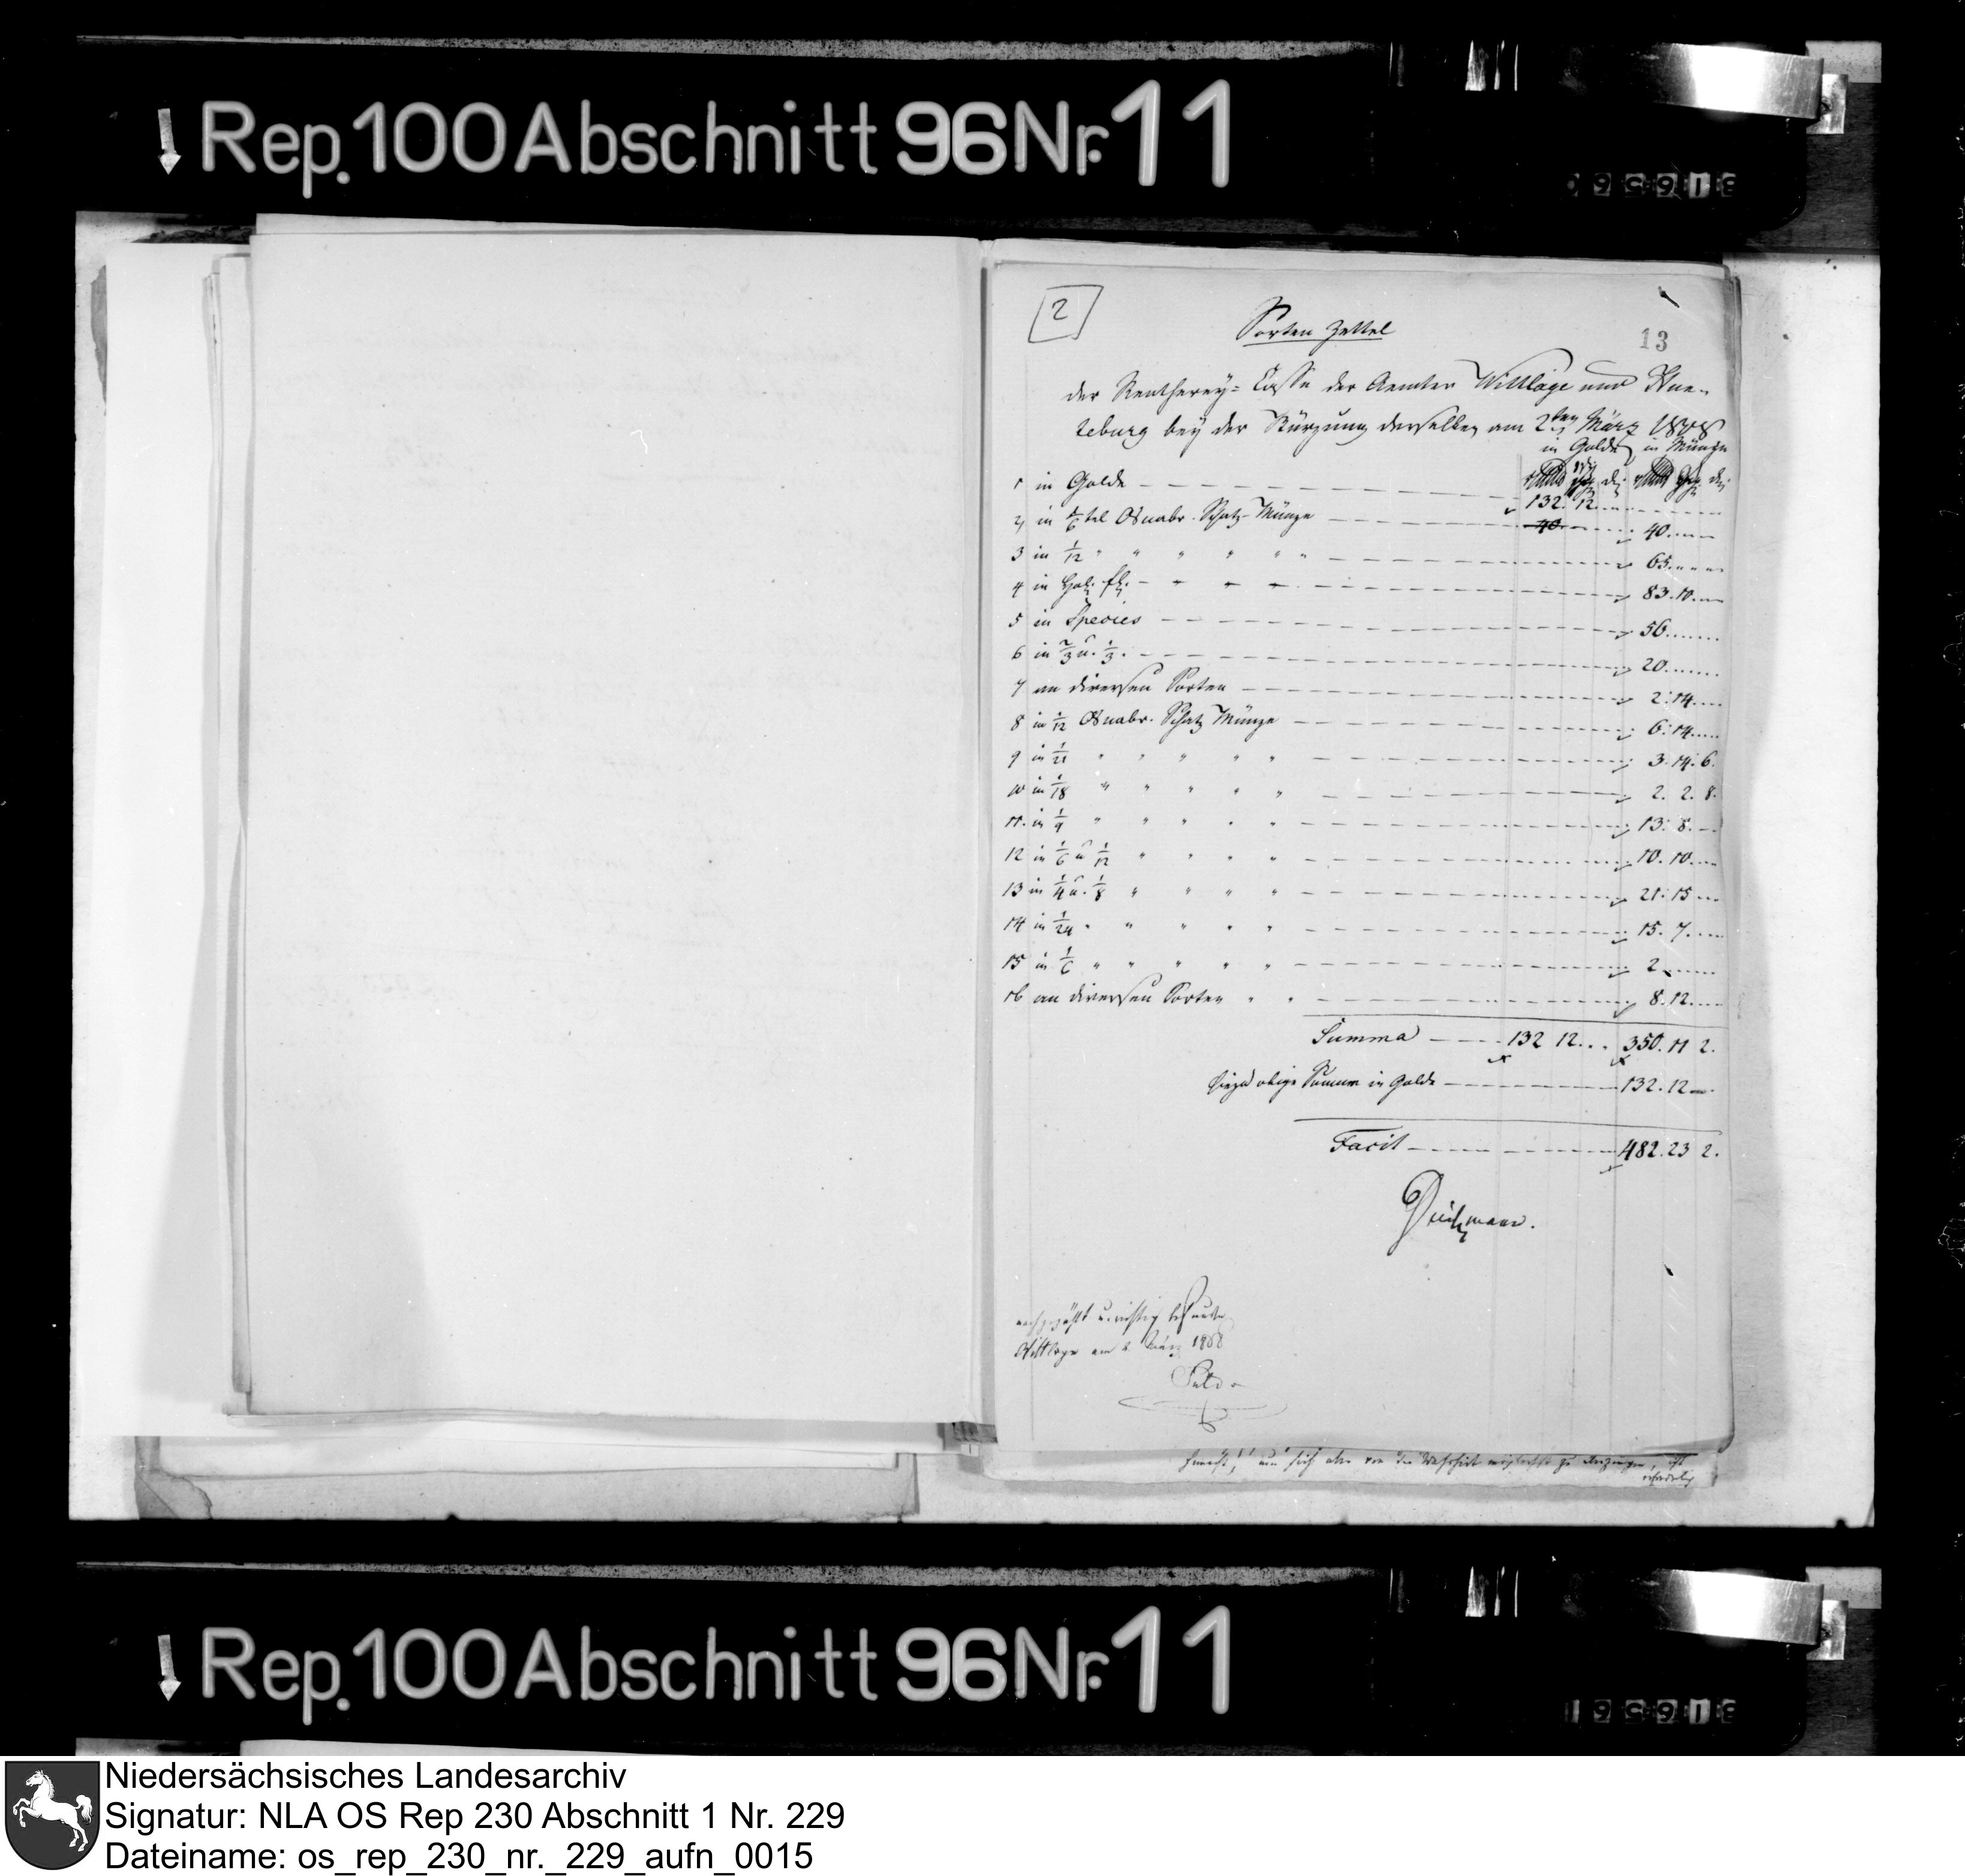 Rep. 100 Abschnitt 96 Nr. 11
2
13
Sorten Zettel
der Rentherey-Casse der Aemter Wittlage und Hun-
teburg bey der Stürzung derselben am 2ten März 1808
in Golde in Münze
1 in Golde 132. 12
2 in 1/6 tel Osnabr. Schatz-Münze 40 40
3 in 1/12 " " " " " " 65
4 in 83. 10
5 in Species 56
6 in 2/3 u. 1/3. 20
7 an diversen Sorten 2. 14
8 in 1/12 Osnabr. Schatz Münze 6. 14
9 in 1/21 " " " " " 3. 14. 6.
10 in 1/18 " " " " " 2. 2. 8.
11. in 1/9 " " " " " 13. 8.
12 in 1/6 u 1/12 " " " " 10. 10
13 in 1/4 u. 1/8 " " " " 21. 15
14 in 1/24 " " " " " 15. 7.
15 in 1/6 " " " " " 2
16 an diversen Sorten " " 8. 12.
Summa 132 12. 350. 11 2.
hiezu obige Summe in Golde 132. 12
Facit 482. 23 2.
nachgezählt u. richtig befunden
Wittlage am 2 März 1808
Rep. 100 Abschnitt 96 Nr. 11
Niedersächsisches Landesarchiv
Signatur: NLA OS Rep 230 Abschnitt 1 Nr. 229
Dateiname: os_rep_230_nr._229_aufn_0015